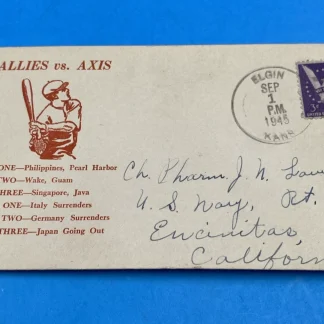 ALLIES vs. AXIS
ONE—Philippines, Pearl Harbor
TWO—Wake, Guam
THREE—Singapore, Java
ONE—Italy Surrenders
TWO—Germany Surrenders
THREE—Japan Going Out
ELGIN
SEP
1
P.M.
1945
KANS
Ch. Pharm. J. N.
U. S. Navy, Rt.
Encinitas
Californ